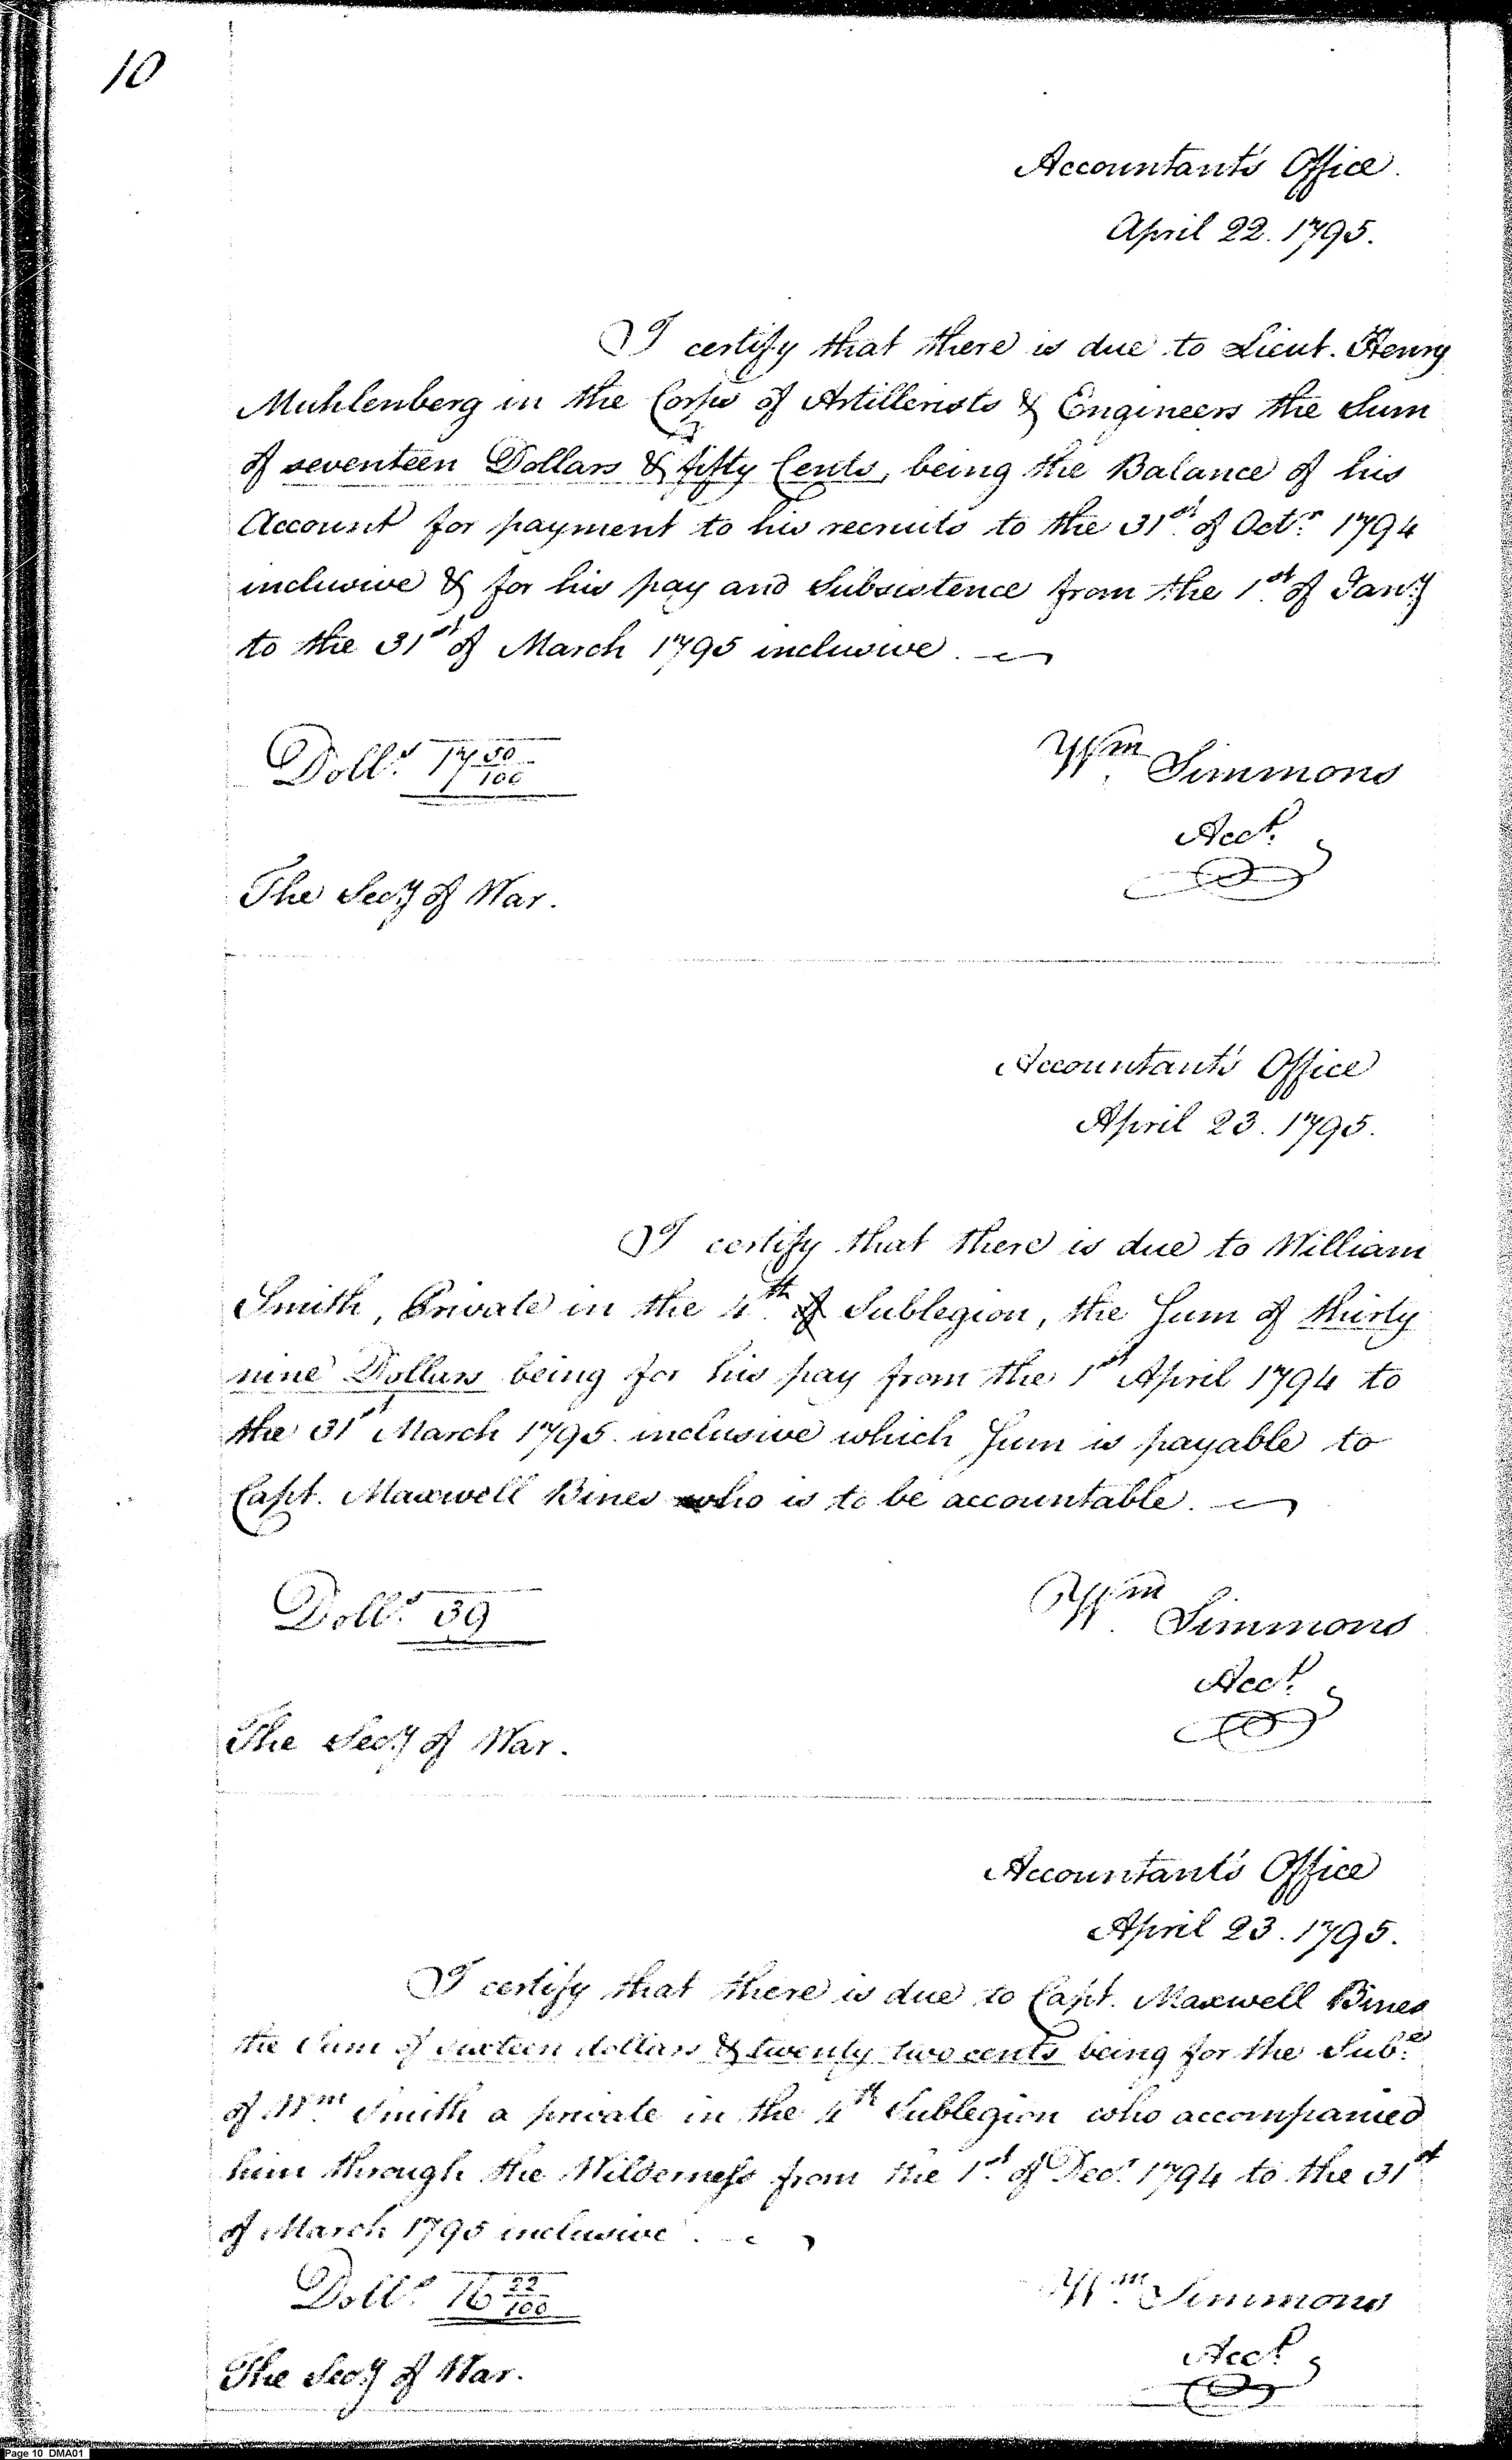 10
Accountant's Office.
April 22. 1795.
I certify that there is due to Lieut. Henry
Muhlenberg in the Corps of Artillerists & Engineers the Sum
of seventeen Dollars & fifty Cents, being the Balance of his
Account for payment to his recruits to the 31st of Octr. 1794
inclusive & for his pay and Subsistence from the 1st of Jany.
to the 31st of March 1795 inclusive.
Dolls. 17 50/100
Wm. Simmons
Acct.
The Secy. of War.
Accountant's Office
April 23. 1795.
I certify that there is due to William
Smith, Private in the 4th. of Sublegion, the Sum of thirty
nine Dollars being for his pay from the 1st April 1794 to
the 31st March 1795. inclusive which Sum is payable to
Capt. Maxwell Bines who is to be accountable.
Dolls. 39
Wm. Simmons
Acct.
The Secy. of War.
Accountant's Office
April 23. 1795.
I certify that there is due to Capt. Maxwell Bines
the Sum of sixteen dollars & twenty two cents being for the Sube.
of Wm. Smith a private in the 4th Sublegion who accompanied
him through the Wilderness from the 1st. of Decr. 1794 to the 31st
of March 1795 inclusive.
Dolls. 16 22/100
Wm. Simmons
Acct.
The Secy. of War.
Page 10 DMA01